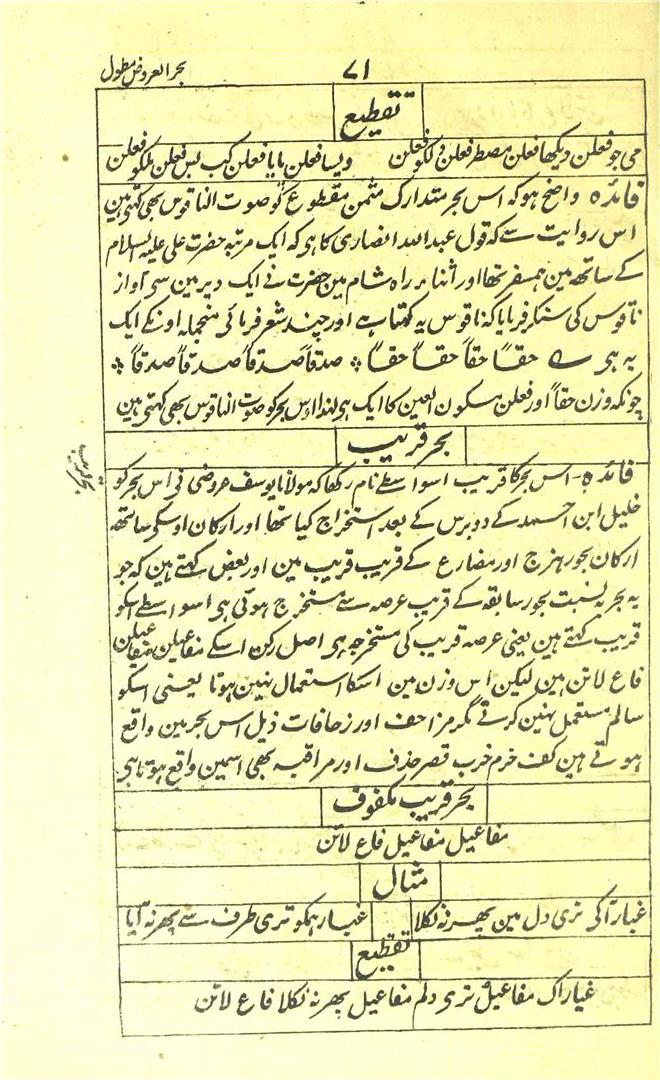 ۷۱
بحر العروض مطول
تقطیع
می جو فعلن دیکھا فعلن مضطر فعلن دلکو فعلن ویسا فعلن پایا فعلن کب بس فعلن ملکو فعلن
فائدہ واضح ہو کہ اس بحر متدارک مثمن مقطوع کو صوت الناقوس بھی کہتی ہین
اس روایت سے کہ قول عبد اللہ انصاری کا ہی کہ ایک مرتبہ حضرت علی علیہ السلام
کے ساتھ مین ہمسفر تھا اور اثناء راہ شام مین حضرت نے ایک دیر مین سی آواز
ناقوس کی سنکر فرمایا کہ ناقوس یہ کہتا ہے اور چند شعر فرمائی منجملہ اونکے ایک
یہ ہی ے حقاً حقاً حقاً حقاً * صدقاً صدقاً صدقاً صدقاً *
چونکہ وزن حقاً اور فعلن بسکون العین کا ایک ہی لہذا اوس بحر کو صوت الناقوس بھی کہتی ہین
بحر قریب
بحر قریب
فائدہ - اس بحر کا قریب اسواسطے نام رکھا کہ مولانا یوسف عروضی نی اس بحر کو
خلیل ابن احمد کے دو برس کے بعد استخراج کیا تھا اور ارکان اوسکی ساتھ
ارکان بحور ہزج اور مضارع کے قریب قریب مین اور بعض کہتے ہین کہ جو
یہ بحر بہ نسبت بحور سابقہ کے قریب عرصہ سے مستخرج ہوئی ہی اسواسطے اسکو
قریب کہتے ہین یعنی عرصہ قریب کی مستخرجہ ہی اصل رکن اسکے مفاعیلن مفاعیلن
فاع لاتن ہین لیکن اس وزن مین اسکا استعمال نہین ہوتا یعنی اسکو
سالم مستعمل نہین کرتے مگر مزاحف اور زحافات ذیل اس بحر مین واقع
ہوتے ہین کف خرم خرب قصر حذف اور مراقبہ بھی اسمین واقع ہوتا ہی
بحر قریب مکفوف
مفاعیل مفاعیل فاع لاتن
مثال
غبار آکی تری دل مین پھر نہ نکلا غبار ہمکو تری طرف سے پھر نہ آیا
تقطیع
غبار اک مفاعیل تری دلم مفاعیل پھر نہ نکلا فاع لاتن